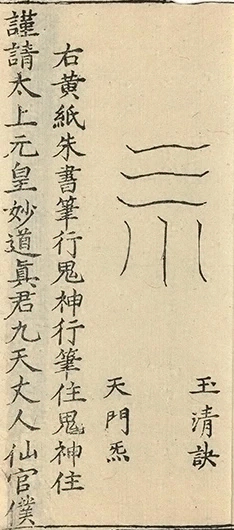 玉清訣
天門炁
右黃紙朱書筆行鬼神行筆住鬼神住
謹請太上元皇妙道眞君九天丈人仙官僕